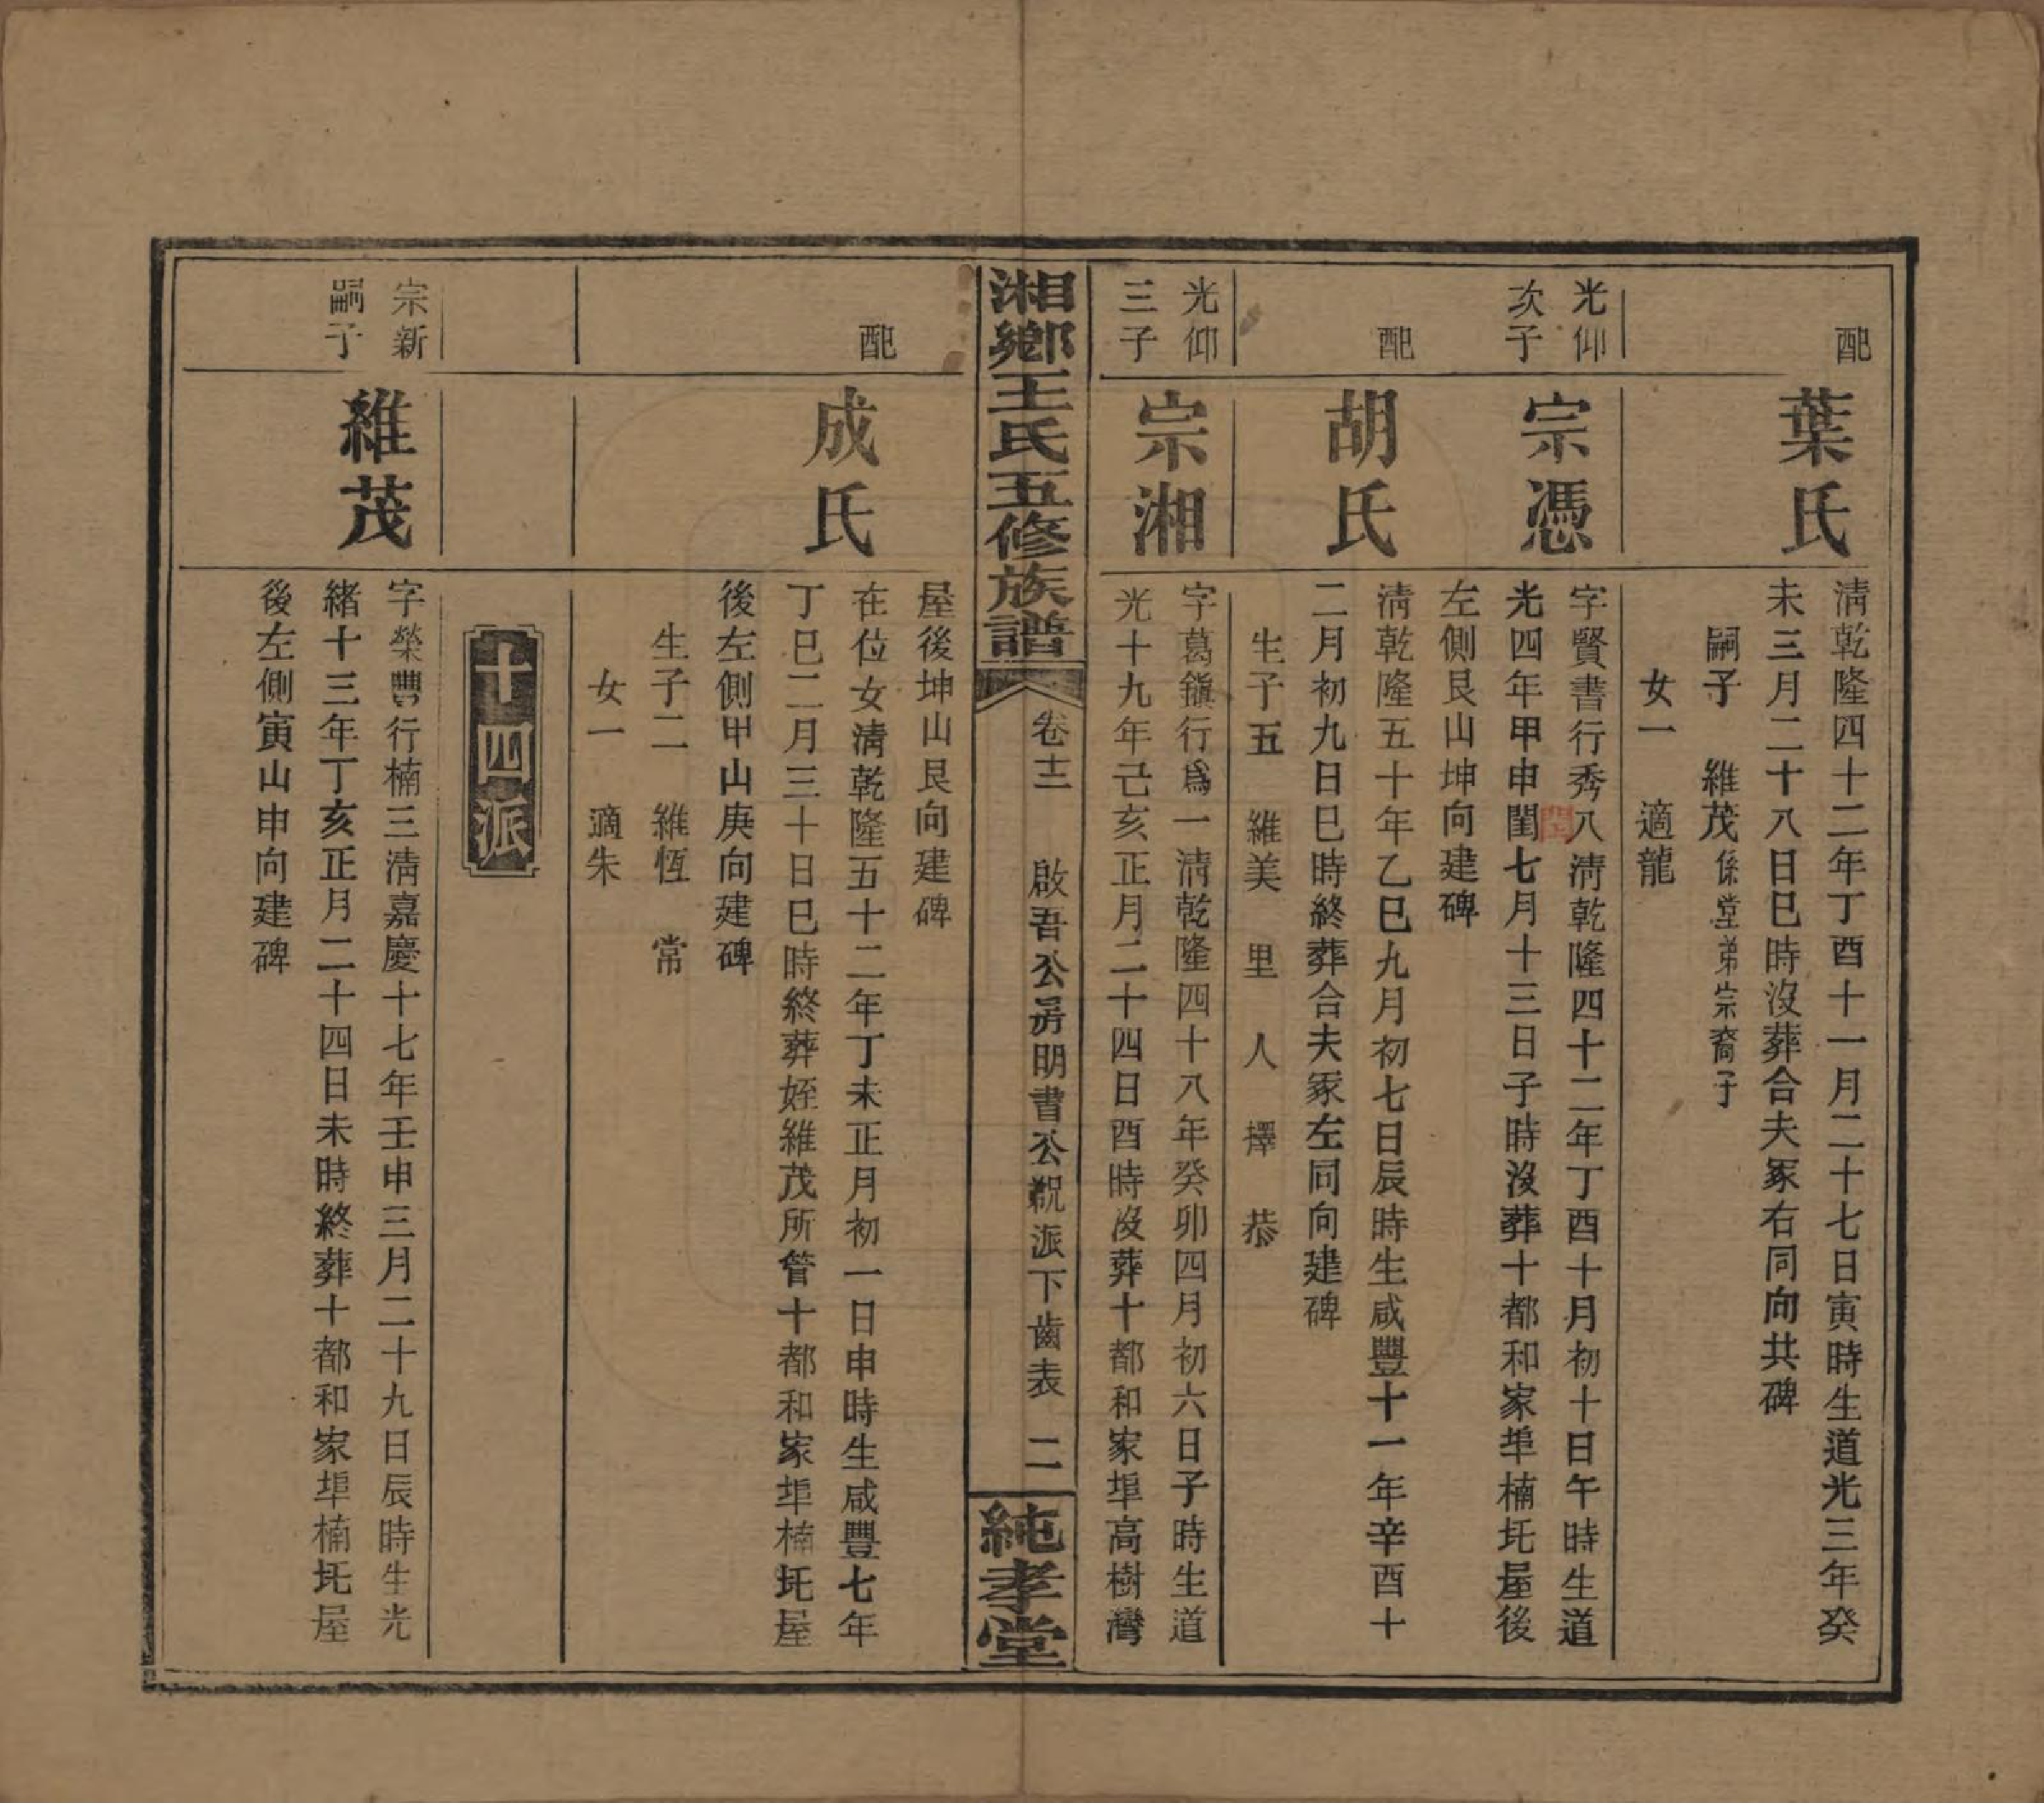 配
葉氏
淸乾隆四十二年丁酉十一月二十七日寅時生道光三年癸
未三月二十八日巳時沒葬合夫冢右同向共碑
嗣子　維茂係堂弟宗裔子
女一　適龍
光仰
次子
宗憑
字賢書行秀八淸乾隆四十二年丁酉十月初十日午時生道
光四年甲申閏七月十三日子時沒葬十都和家埠楠圫屋後
左側艮山坤向建碑
閏
配
胡氏
淸乾隆五十年乙巳九月初七日辰時生咸豐十一年辛酉十
二月初九日巳時終葬合夫冢左同向建碑
生子五　維美　里　人　擇　恭
光仰
三子
宗湘
字葛鎭行爲一淸乾隆四十八年癸卯四月初六日子時生道
光十九年己亥正月二十四日酉時沒葬十都和家埠高樹灣
湘鄉王氏五修族譜
卷十二　啟吾公房明書公覞派下齒表　二
純孝堂
屋後坤山艮向建碑
配
成氏
在位女淸乾隆五十二年丁未正月初一日申時生咸豐七年
丁巳二月三十日巳時終葬姪維茂所管十都和家埠楠圫屋
後左側甲山庚向建碑
生子二　維恆　常
女一　適朱
十四派
宗新
嗣子
維茂
字榮豐行楠三淸嘉慶十七年壬申三月二十九日辰時生光
緒十三年丁亥正月二十四日未時終葬十都和家埠楠圫屋
後左側寅山申向建碑